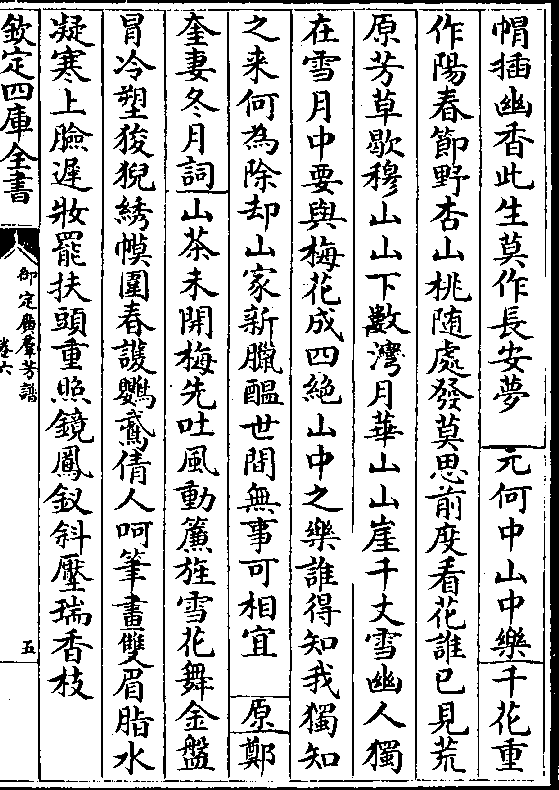 帽插幽香此生莫作長安夢　元何中山中樂千花重
作陽春節野杏山桃随處發莫思前度看花誰已見荒
原芳草歇穆山山下數灣月華山山崖千丈雪幽人獨
在雪月中要與梅花成四絶山中之樂誰得知我獨知
之来何為除却山家新臘醖世間無事可相宜　原鄭
奎妻冬月詞山茶未開梅先吐風動簾旌雪花舞金盤
冒冷塑狻猊綉幙圍春護鸚鵡倩人呵筆畫雙眉脂水
凝寒上臉遲妝罷扶頭重照鏡鳳釵斜壓瑞香枝
欽定四庫全書
御定廣羣芳譜
卷六
五